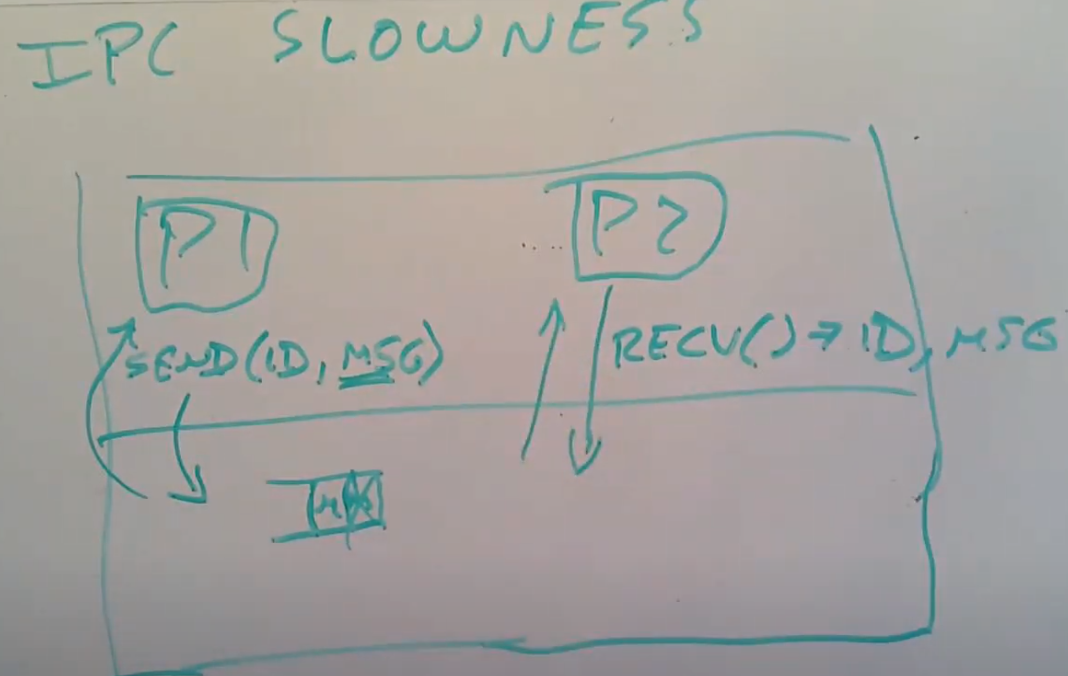 IPC SLOWNESS
P1
P2
SEND(ID, MSG)
RECV() → ID, MSG